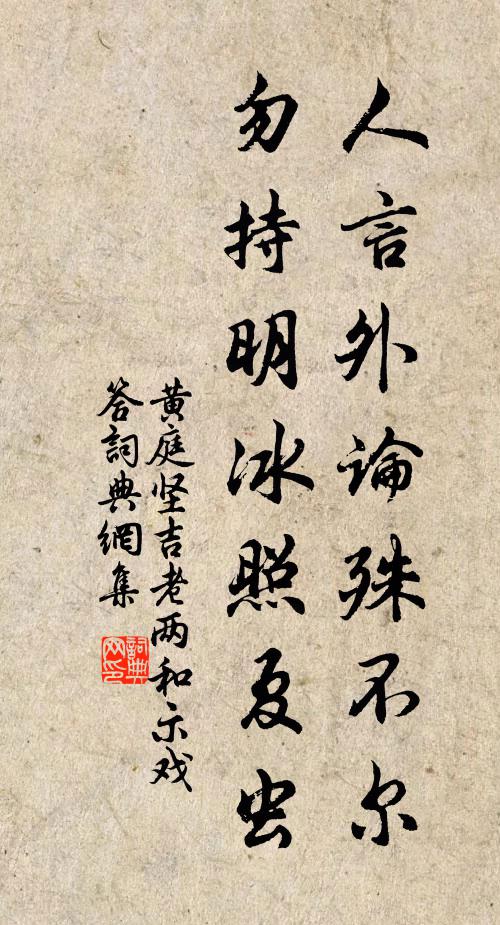 人言外論殊不尔
勿持明冰照夏虫
黄庭坚吉老两和示戏
答詞典網集
詞典
网印